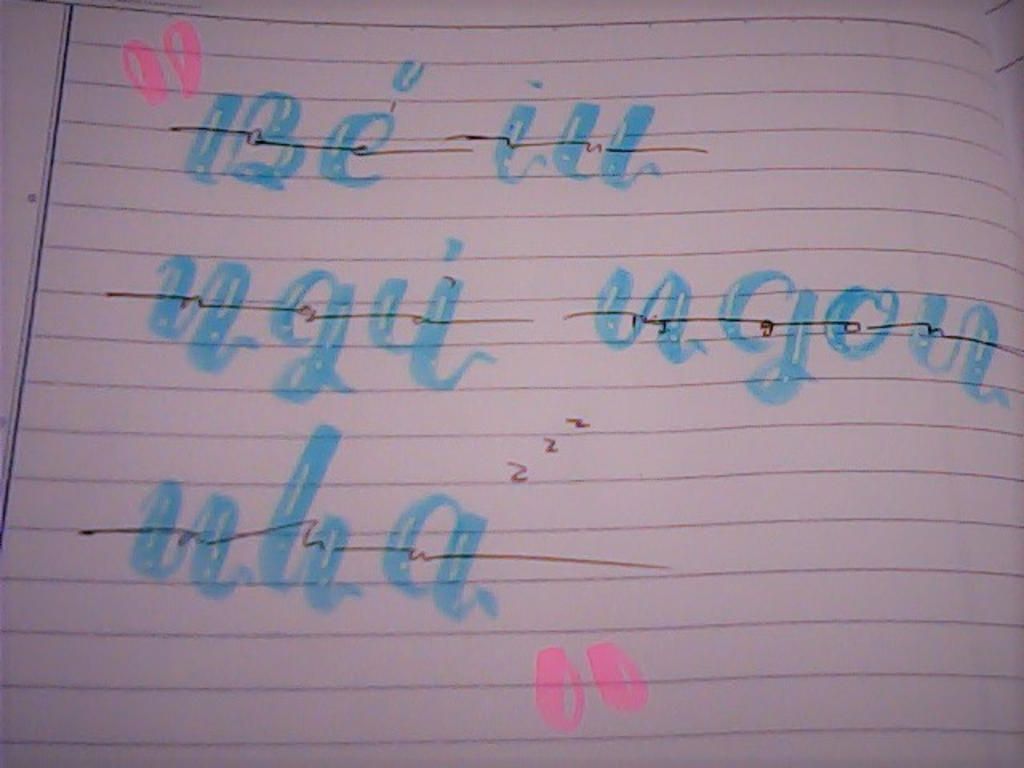 "Bé iu
ngủ ngon
nha zzz"